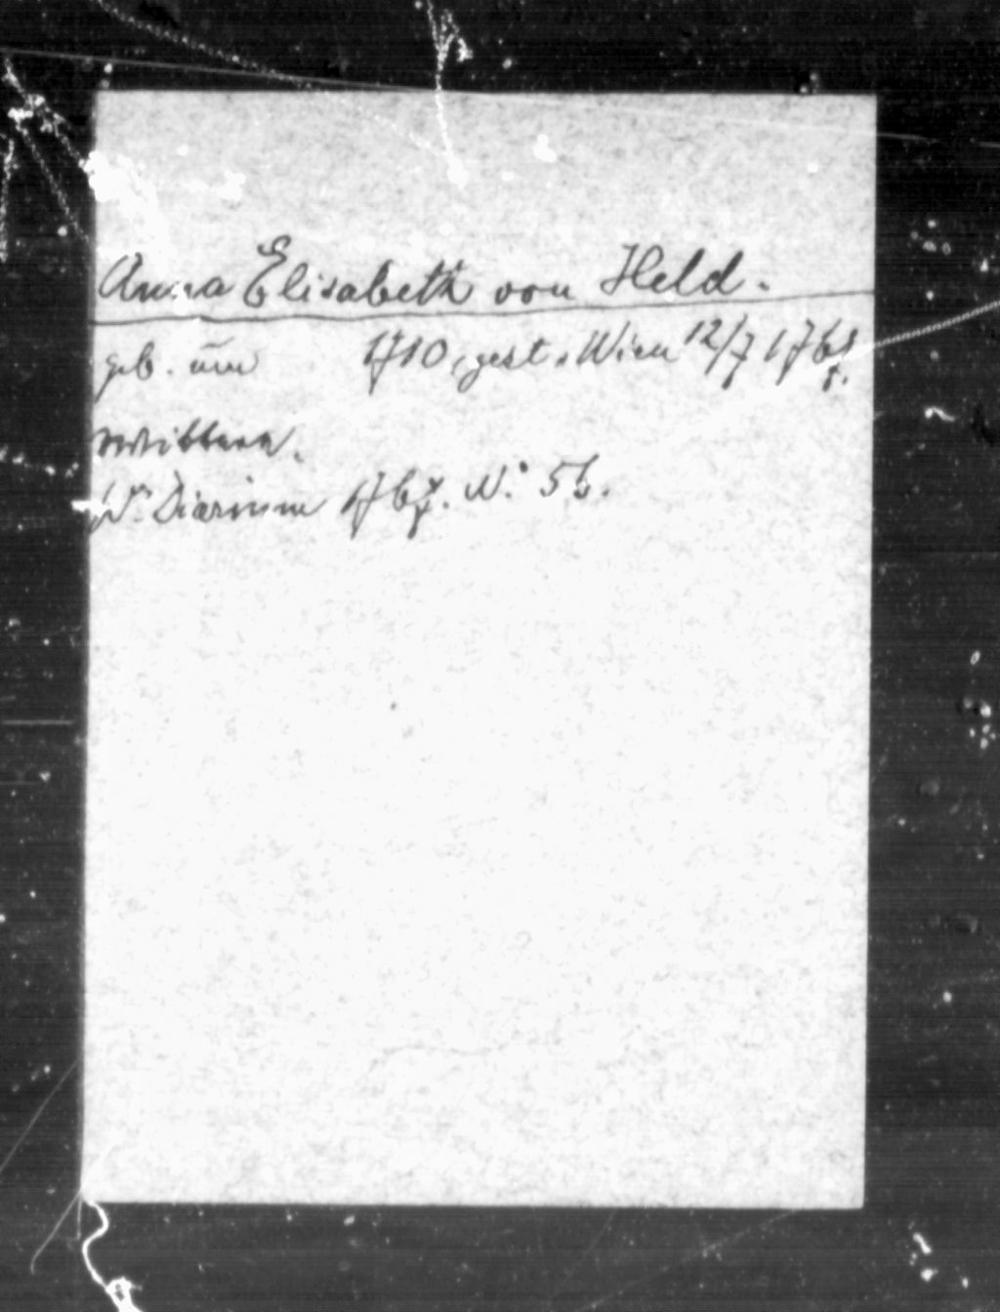 Anna Elisabeth von Held.
geb. um 1710, gest. Wien 12/7 176
Wittwe.
W. Diarium 176 N: 56.